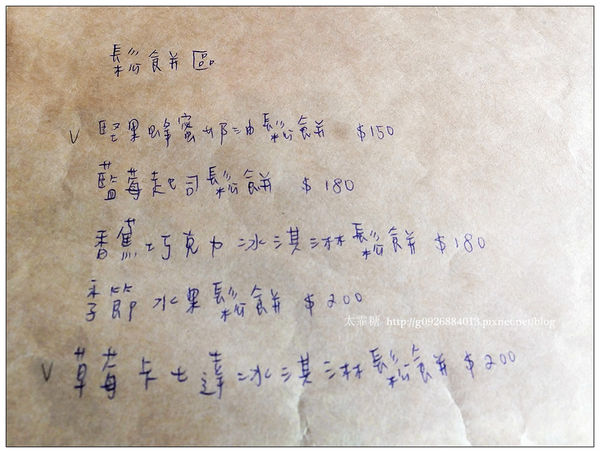 鬆餅區
V 堅果蜂蜜奶油鬆餅 $150
藍莓起司鬆餅 $180
香蕉巧克力冰淇淋鬆餅 $180
季節水果鬆餅 $200
太霏糖 http://g0926884013.pixnet.net/blog
V 草莓卡士達冰淇淋鬆餅 $200